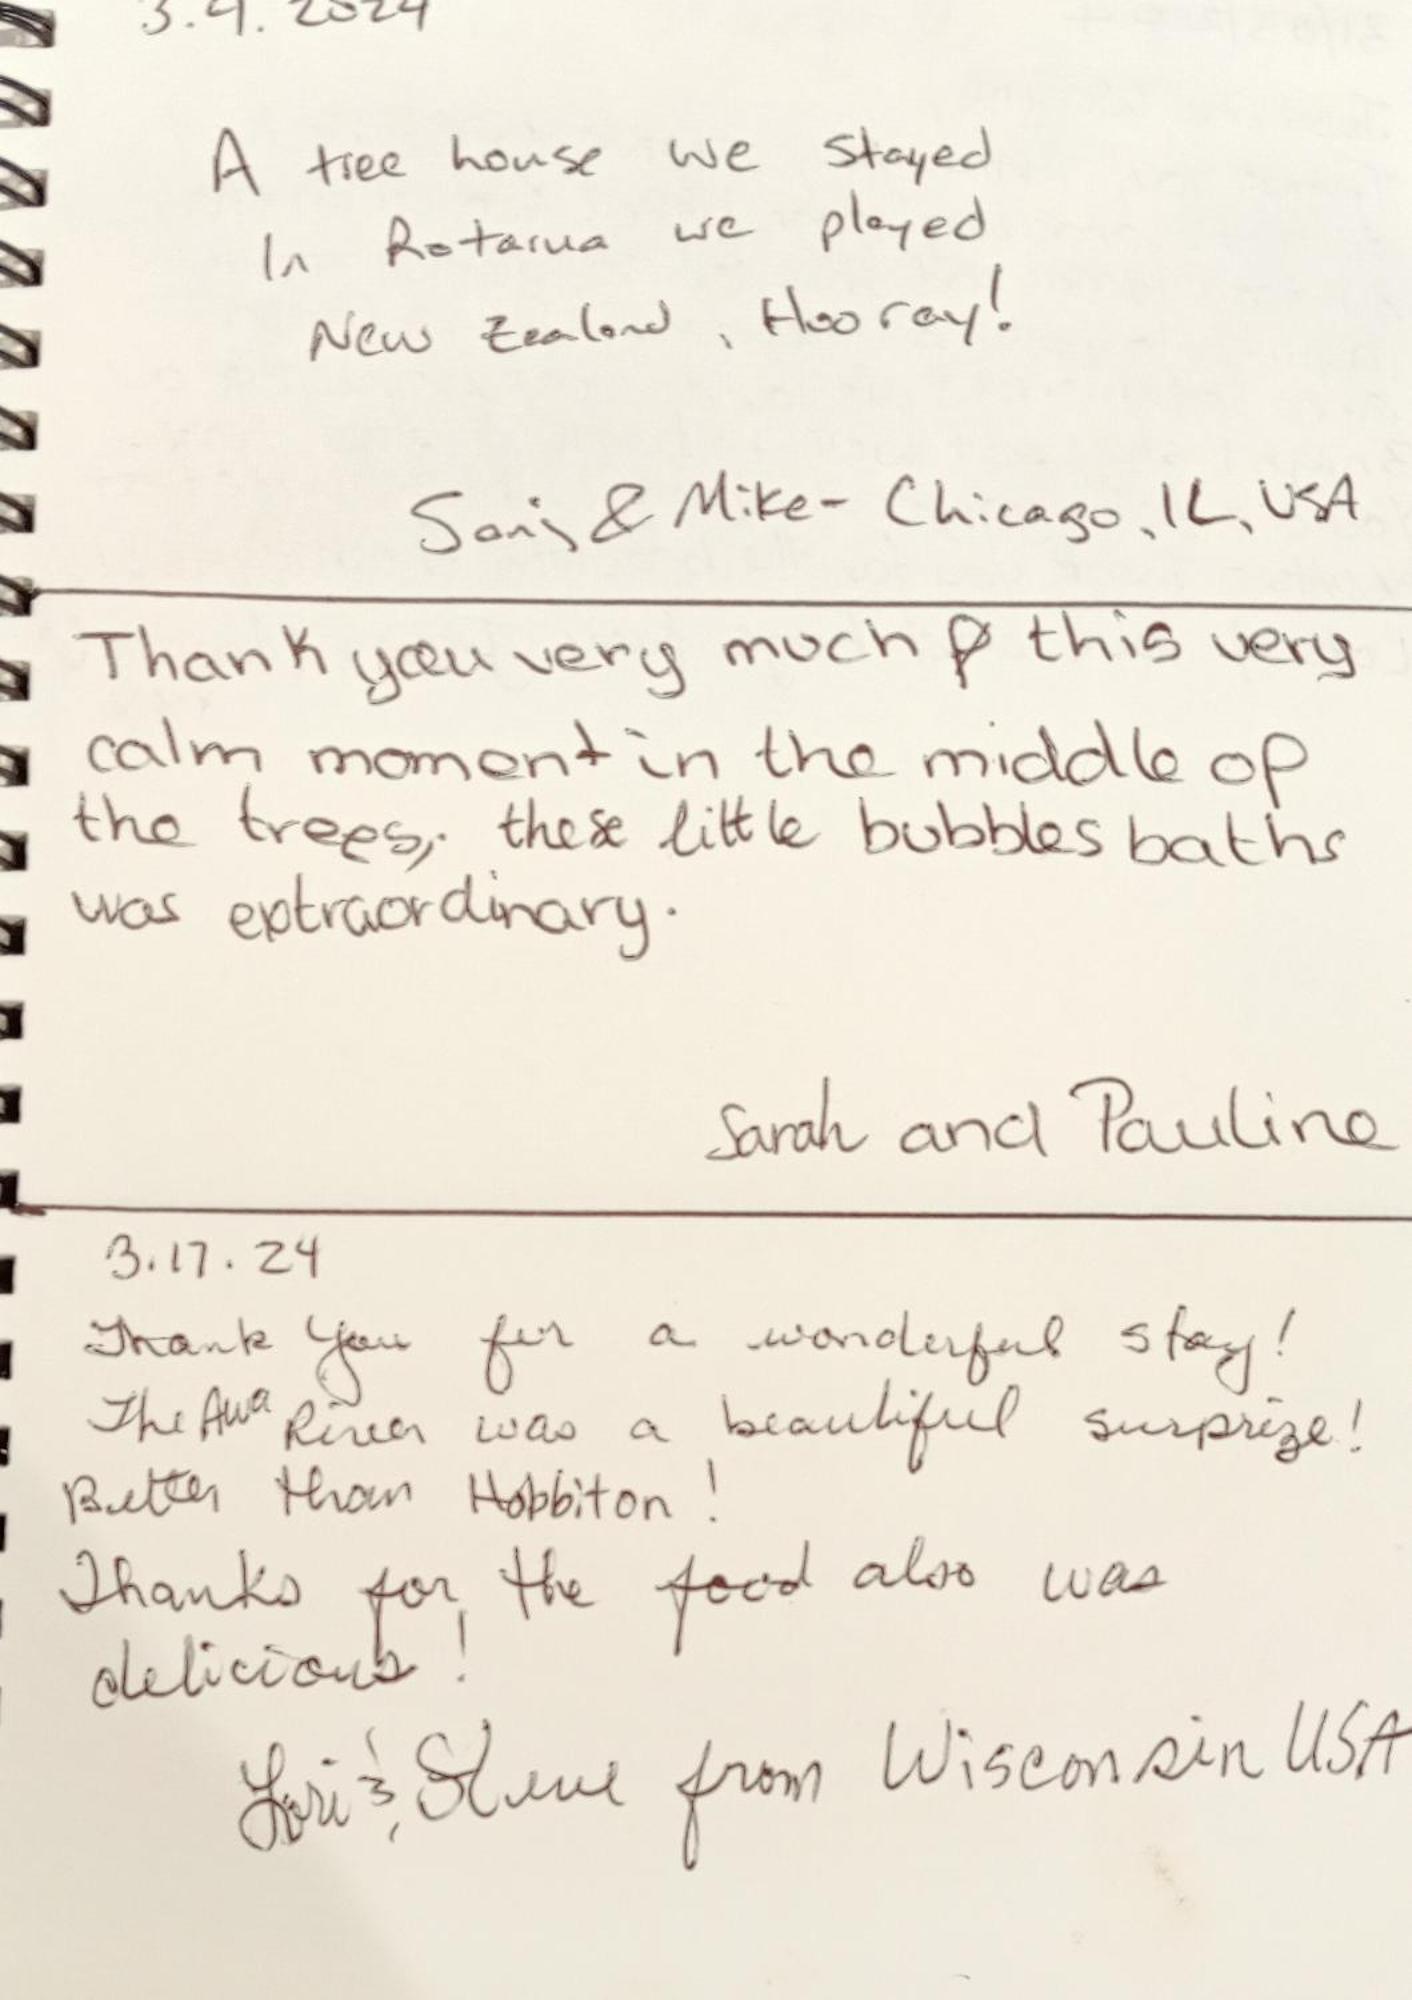 3.9.2024
A tree house we stayed
In Rotarua we played
New Zealand, Hooray!
& Mike - Chicago, IL, USA
Thank you very much this very
calm moment in the middle of
the trees, these little bubbles baths
was extraordinary.
Sarah and Pauline
3.17.24
Thank You for a wonderful stay!
The Awa River was a beautiful surprize!
Better than Hobbiton!
Thanks for the food also was
delicious!
Lori & Steve from Wisconsin USA